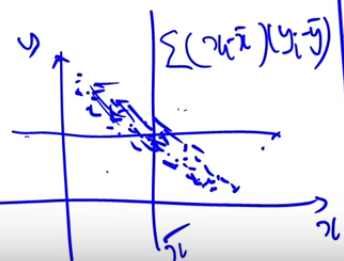 y
Σ(xi-x̄)(yi-ȳ)
x
x̄